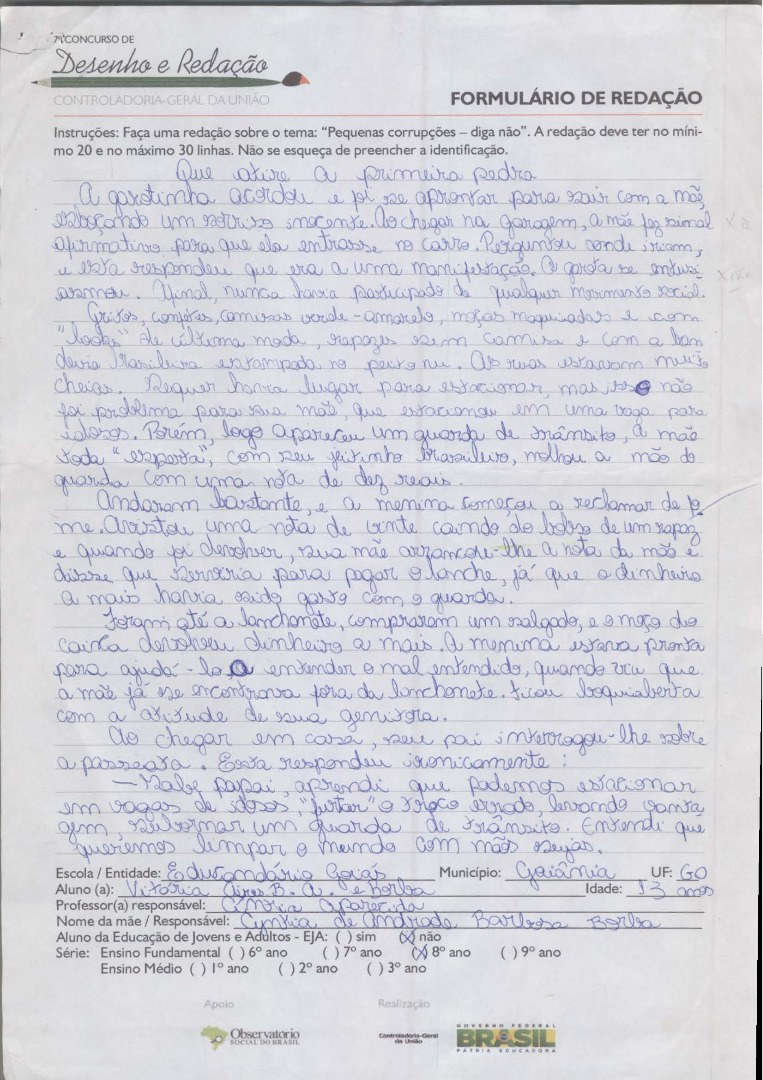 7º CONCURSO DE
Desenho e Redação
CONTROLADORIA-GERAL DA UNIÃO
FORMULÁRIO DE REDAÇÃO
Instruções: Faça uma redação sobre o tema: "Pequenas corrupções – diga não". A redação deve ter no míni-
mo 20 e no máximo 30 linhas. Não se esqueça de preencher a identificação.
Que atire a primeira pedra
A garotinha acordou e foi se aprontar para sair com a mãe,
esboçando um sorriso inocente. Ao chegar na garagem, a mãe fez sinal
afirmativo para que ela entrasse no carro. Perguntou aonde iriam,
e esta respondeu que era a uma manifestação. A garota se entusi
asmou. Afinal, nunca havia participado de qualquer movimento social.
Gritos, confetes, camisas verde-amarelo, moças maquiadas e com
"looks" de última moda, rapazes sem camisa e com a ban
deira brasileira estampada no peito nu. As ruas estavam muito
cheias. Sequer havia lugar para estacionar, mas isso não
foi problema para sua mãe, que estacionou em uma vaga para
idosos. Porém, logo apareceu um guarda de trânsito, a mãe
toda "esperta", com seu jeitinho brasileiro, molhou a mão do
guarda com uma nota de dez reais.
Andaram bastante, e a menina começou a reclamar de fo
me. Avistou uma nota de vinte caindo do bolso de um rapaz
e quando foi devolver, sua mãe arrancou-lhe a nota da mão e
disse que serviria para pagar o lanche, já que o dinheiro
a mais havia sido gasto com o guarda.
Foram até a lanchonete, compraram um salgado, e o moço do
caixa devolveu dinheiro a mais. A menina estava pronta
para ajudá-lo a entender o mal entendido, quando viu que
a mãe já se encontrava fora da lanchonete. Ficou boquiaberta
com a atitude de sua genitora.
Ao chegar em casa, seu pai interrogou-lhe sobre
a passeata. Esta respondeu ironicamente:
— Sabe papai, aprendi que podemos estacionar
em vagas de idosos, "furtar" o troco errado, levando vanta
gem, subornar um guarda de trânsito. Entendi que
queremos limpar o mundo com mãos sujas.
Escola / Entidade: Educandário Goiás Município: Goiânia UF: GO
Aluno (a): Vitória Aires B. A. e Borba Idade: 13 anos
Professor(a) responsável: Cíntia Aparecida
Nome da mãe / Responsável: Cynthia de Andrade Barbosa Borba
Aluno da Educação de Jovens e Adultos - EJA: ( ) sim (X) não
Série: Ensino Fundamental ( ) 6º ano ( ) 7º ano (X) 8º ano ( ) 9º ano
Ensino Médio ( ) 1º ano ( ) 2º ano ( ) 3º ano
Apoio Realização
Observatório
SOCIAL DO BRASIL
Controladoria-Geral
da União
GOVERNO FEDERAL
BRASIL
PÁTRIA EDUCADORA